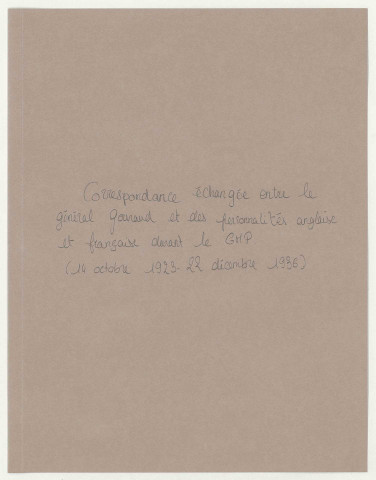 Correspondance échangée entre le
général Gouraud et des personnalités anglaise
et française durant le GMP
(10 octobre 1923-22 décembre 1936)